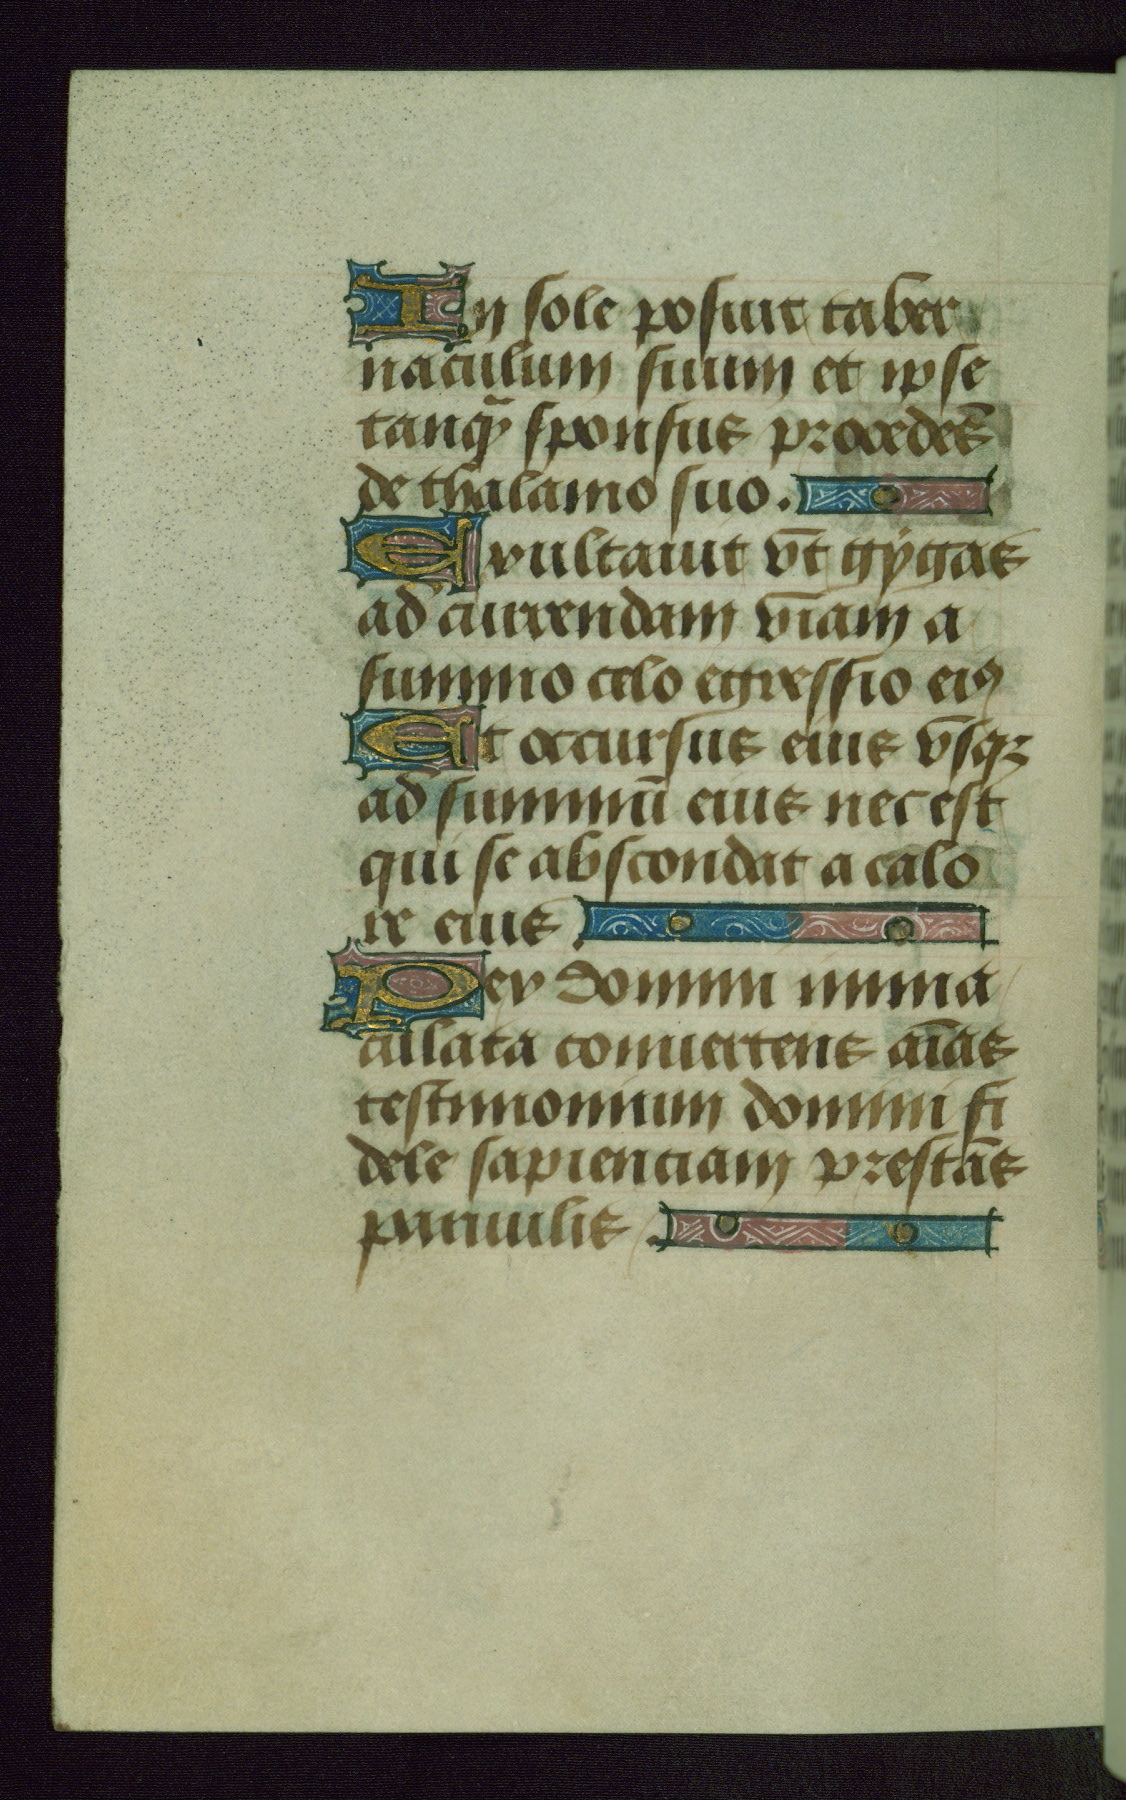 In sole posuit taber
naculum suum et ipse
tanq̃ sponsus procedẽs
de thalamo suo.
Exultauit vt gygas
ad currendam viam a
summo celo egressio eiꝰ
Et occursus eius vsqꝫ
ad summũ eius nec est
qui se abscondat a calo
re eius.
Lex domini inma
culata conuertens aĩas
testimonium domini fi
dele sapienciam prestãs
paruulis.